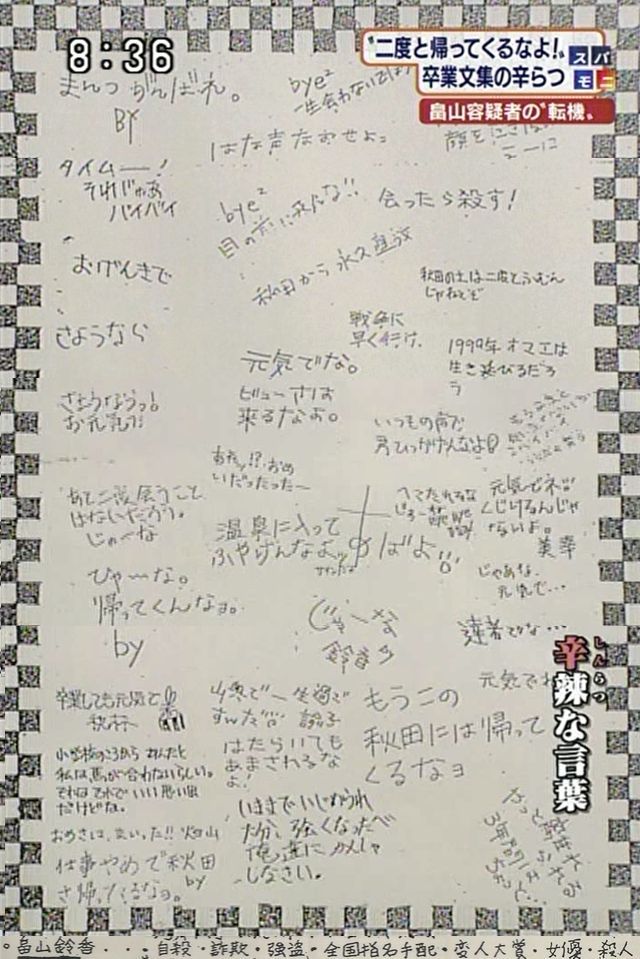 8:36
"二度と帰ってくるなよ!"
卒業文集の辛らつ
スパモニ
畠山容疑者の"転機"
まんつ がんばれ。
BY
bye²
一生会わないでしょ
はな声なおせよ。
タイムー!
それじゃあ
バイバイ
bye²
目の前に来んな!!
会ったら殺す!
おげんきで
秋田から永久追放
秋田の土は二度とふむん
じゃねえぞ
さようなら
戦争に
早く行け。
1999年オマエは
生き延びるだろ
う
元気でな。
ビューさは
来るなよ。
さようなら。!
お元気で
いつもの声で
男ひっかけんなよ
あと二度会うこと
はないだろう。
じゃーな
温泉に入って
ふやけんなよ
あばよ
元気でネ
くじけるんじゃ
ないよ。
美幸
じゃあな
元気で…
びゃーな。
帰ってくんなよ。
by
じゃーな
鈴香
達者でな…
元気でね
辛辣な言葉
しんらつ
卒業しても元気で
山奥で一生過ご
すんだ
はたらいても
あまされるな
よ!
もうこの
秋田には帰って
くるなヨ
小学校のころから なんだと
私は馬が合わないらしい。
それはそれでいい思い出
だけどな。
いままでいじめられ
た分、強くなったべ
俺達にかんしゃ
しなさい。
仕事やめで秋田
さ帰ってくるなよ。
by
やっと
3年間
・畠山鈴香・・・自殺・詐欺・強盗・全国指名手配・変人大賞・女優・殺人